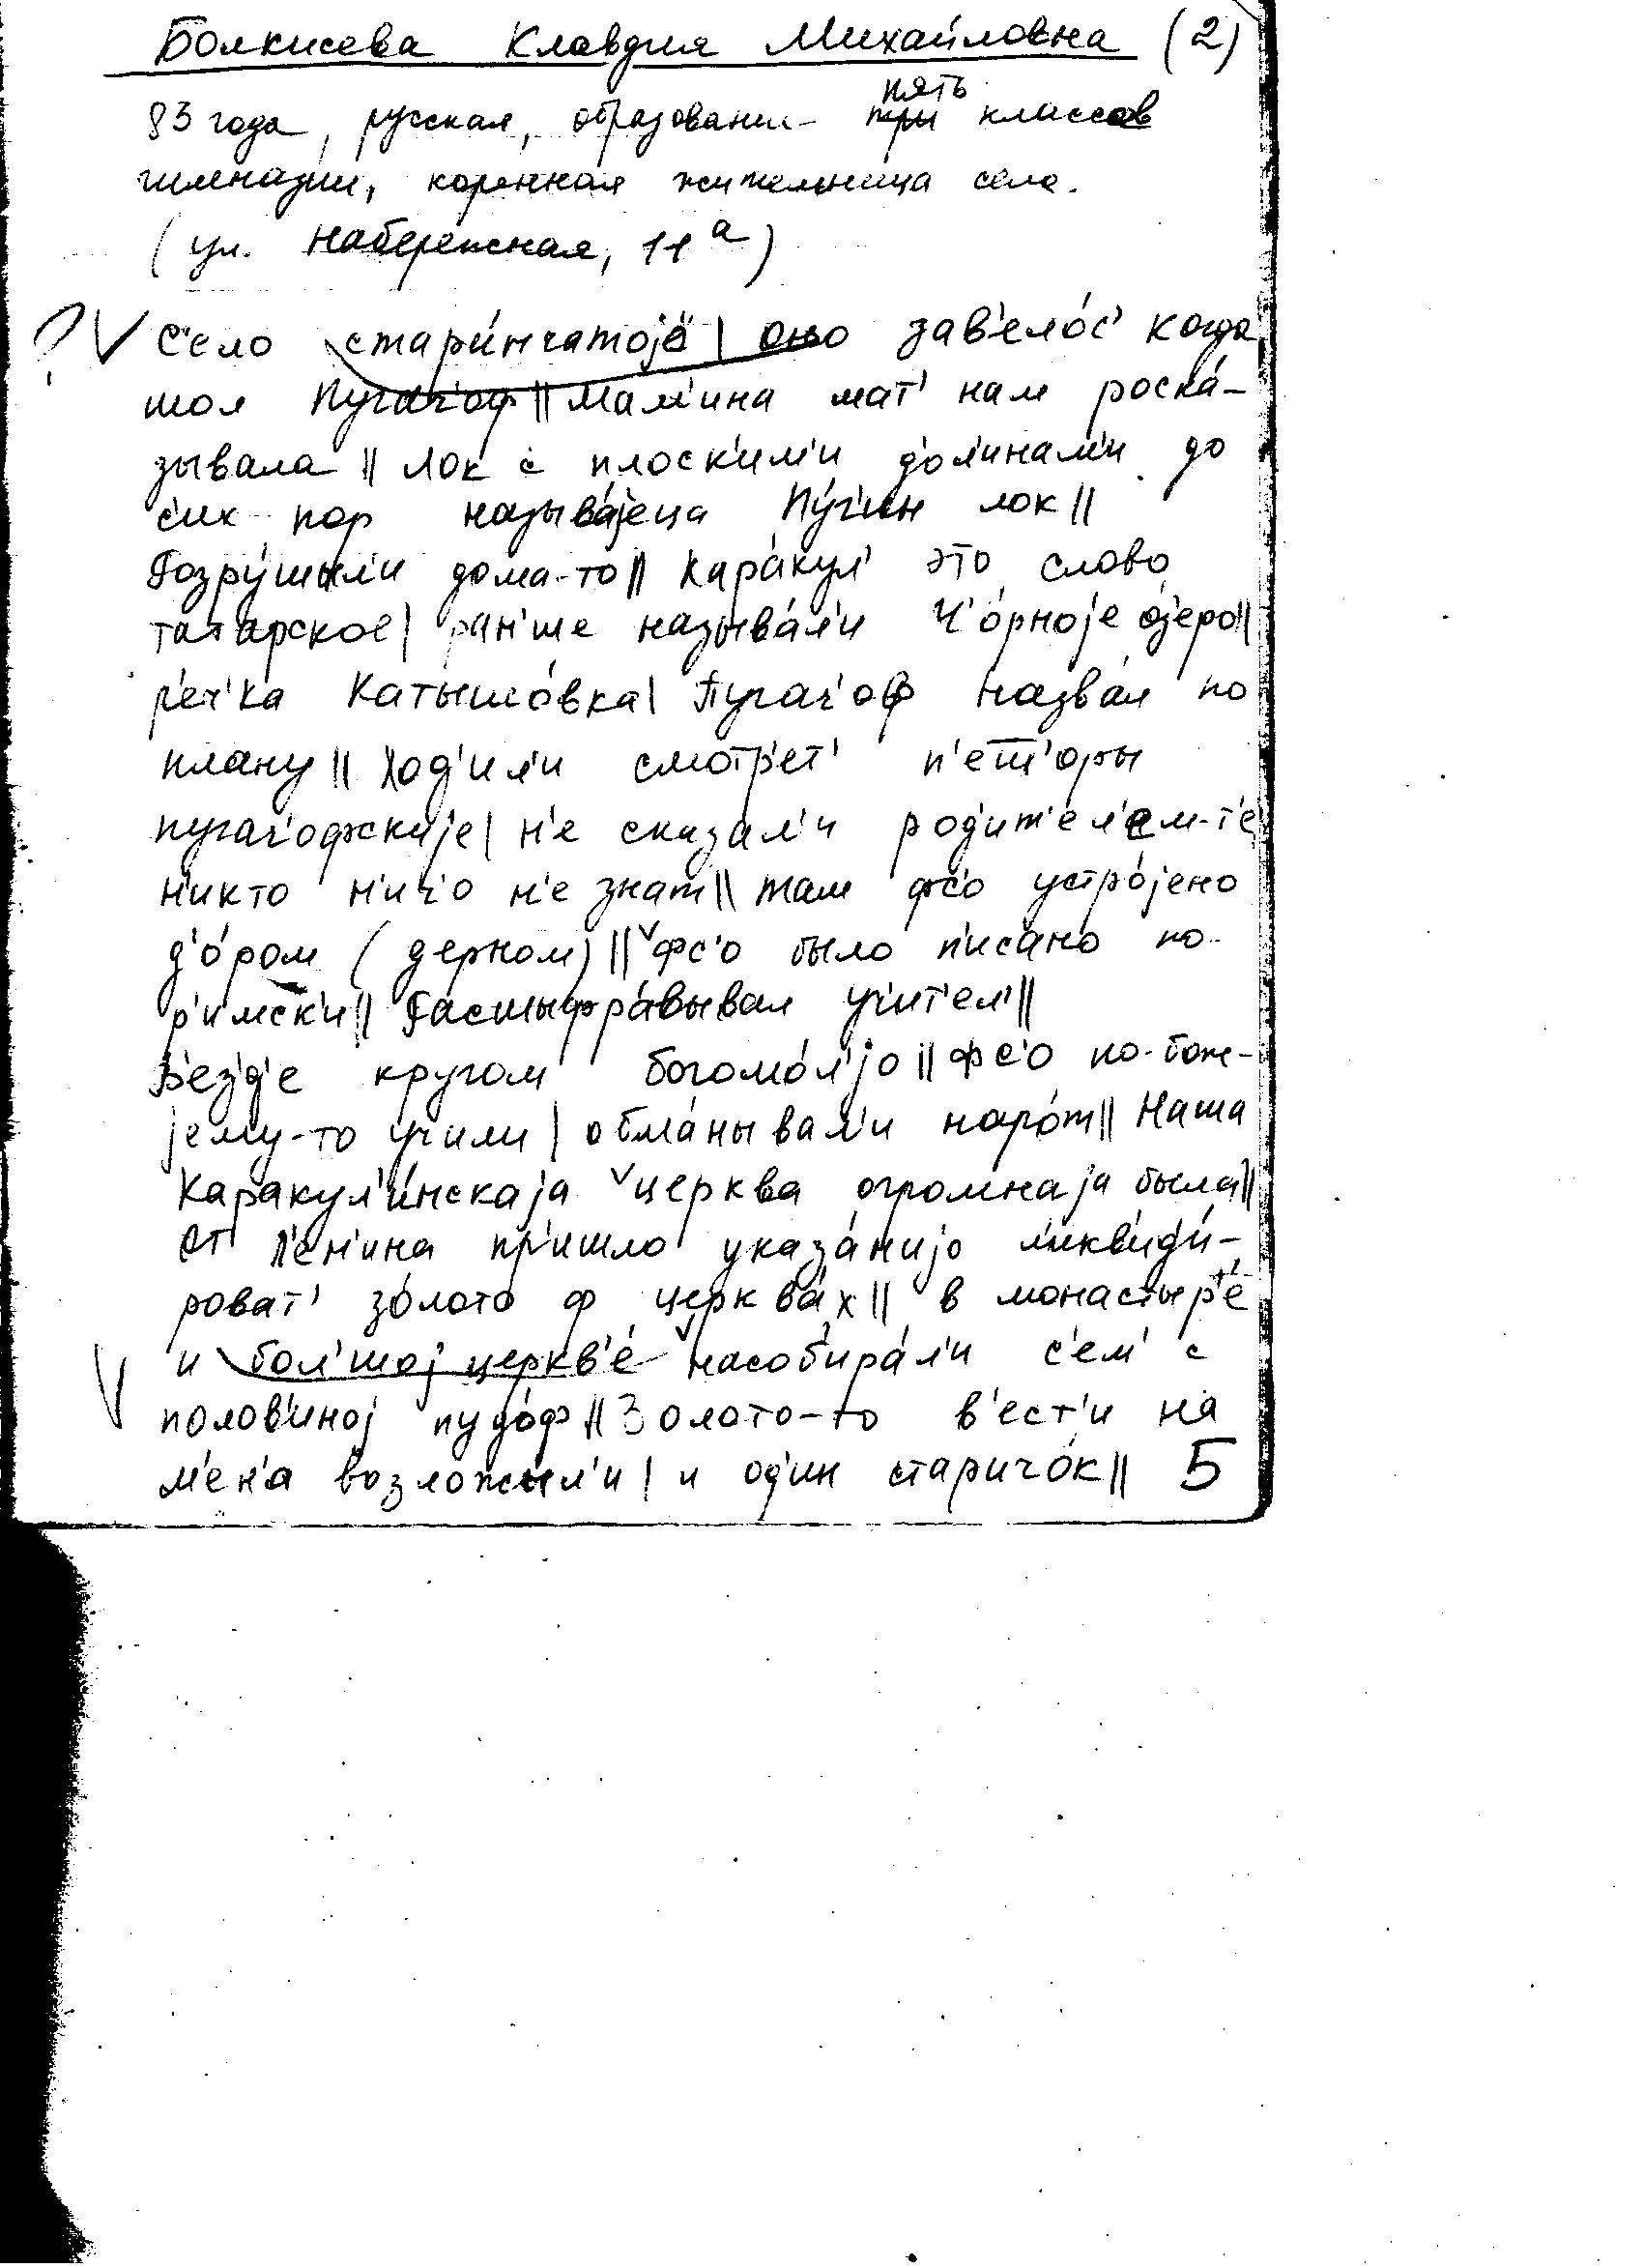 Болкисева Клавдия Михайловна (2)
пять
83 года, русская, образование - три классов
гимназии, коренная жительница села.
(ул. Набережная, 11а)
? V С'ело стари́нчатојо | оно зав'ело́с' когда
шол Пугач'оф || Мам'ина мат' нам роска́-
зывала || Лок с плоск'им'и дол'инам'и до
с'их пор называ́јеца Пу́г'ин лок ||
Розру́шыл'и дома-то || Кара́кул' это слово
татарское | ран'ше называ́л'и Ч'о́рноје о́з'еро ||
р'еч'ка Катышо́вка | Пугач'оф назва́л по
плану || Ход'ил'и смотр'ет' п'ещ'оры
пугач'офскије | н'е сказал'и род'ит'ел'ам-т'е
н'икто н'ич'о н'е знат || там фс'о устро́јено
д'о́ром (дерном) || фс'о было п'иса́но по-
р'имск'и || Расшыфра́вывал уч'ит'ел' ||
В'езд'е кругом богомо́л'јо || Фс'о по-бож-
јему-то учили | обма́нывал'и наро́т || Наша
Каракул'и́нскаја церква огромнаја была ||
От Л'ен'ина пр'ишло указа́нијо л'икв'ид'и́-
роват' зо́лото ф церква́х || в монастыр'е́
V и бол'шој церкв'е́ насоб'ира́л'и с'ем' с
полов'иној пудо́ф || Золото-то в'ест'и на
м'ен'а возложыл'и | и од'ин старичо́к || 5